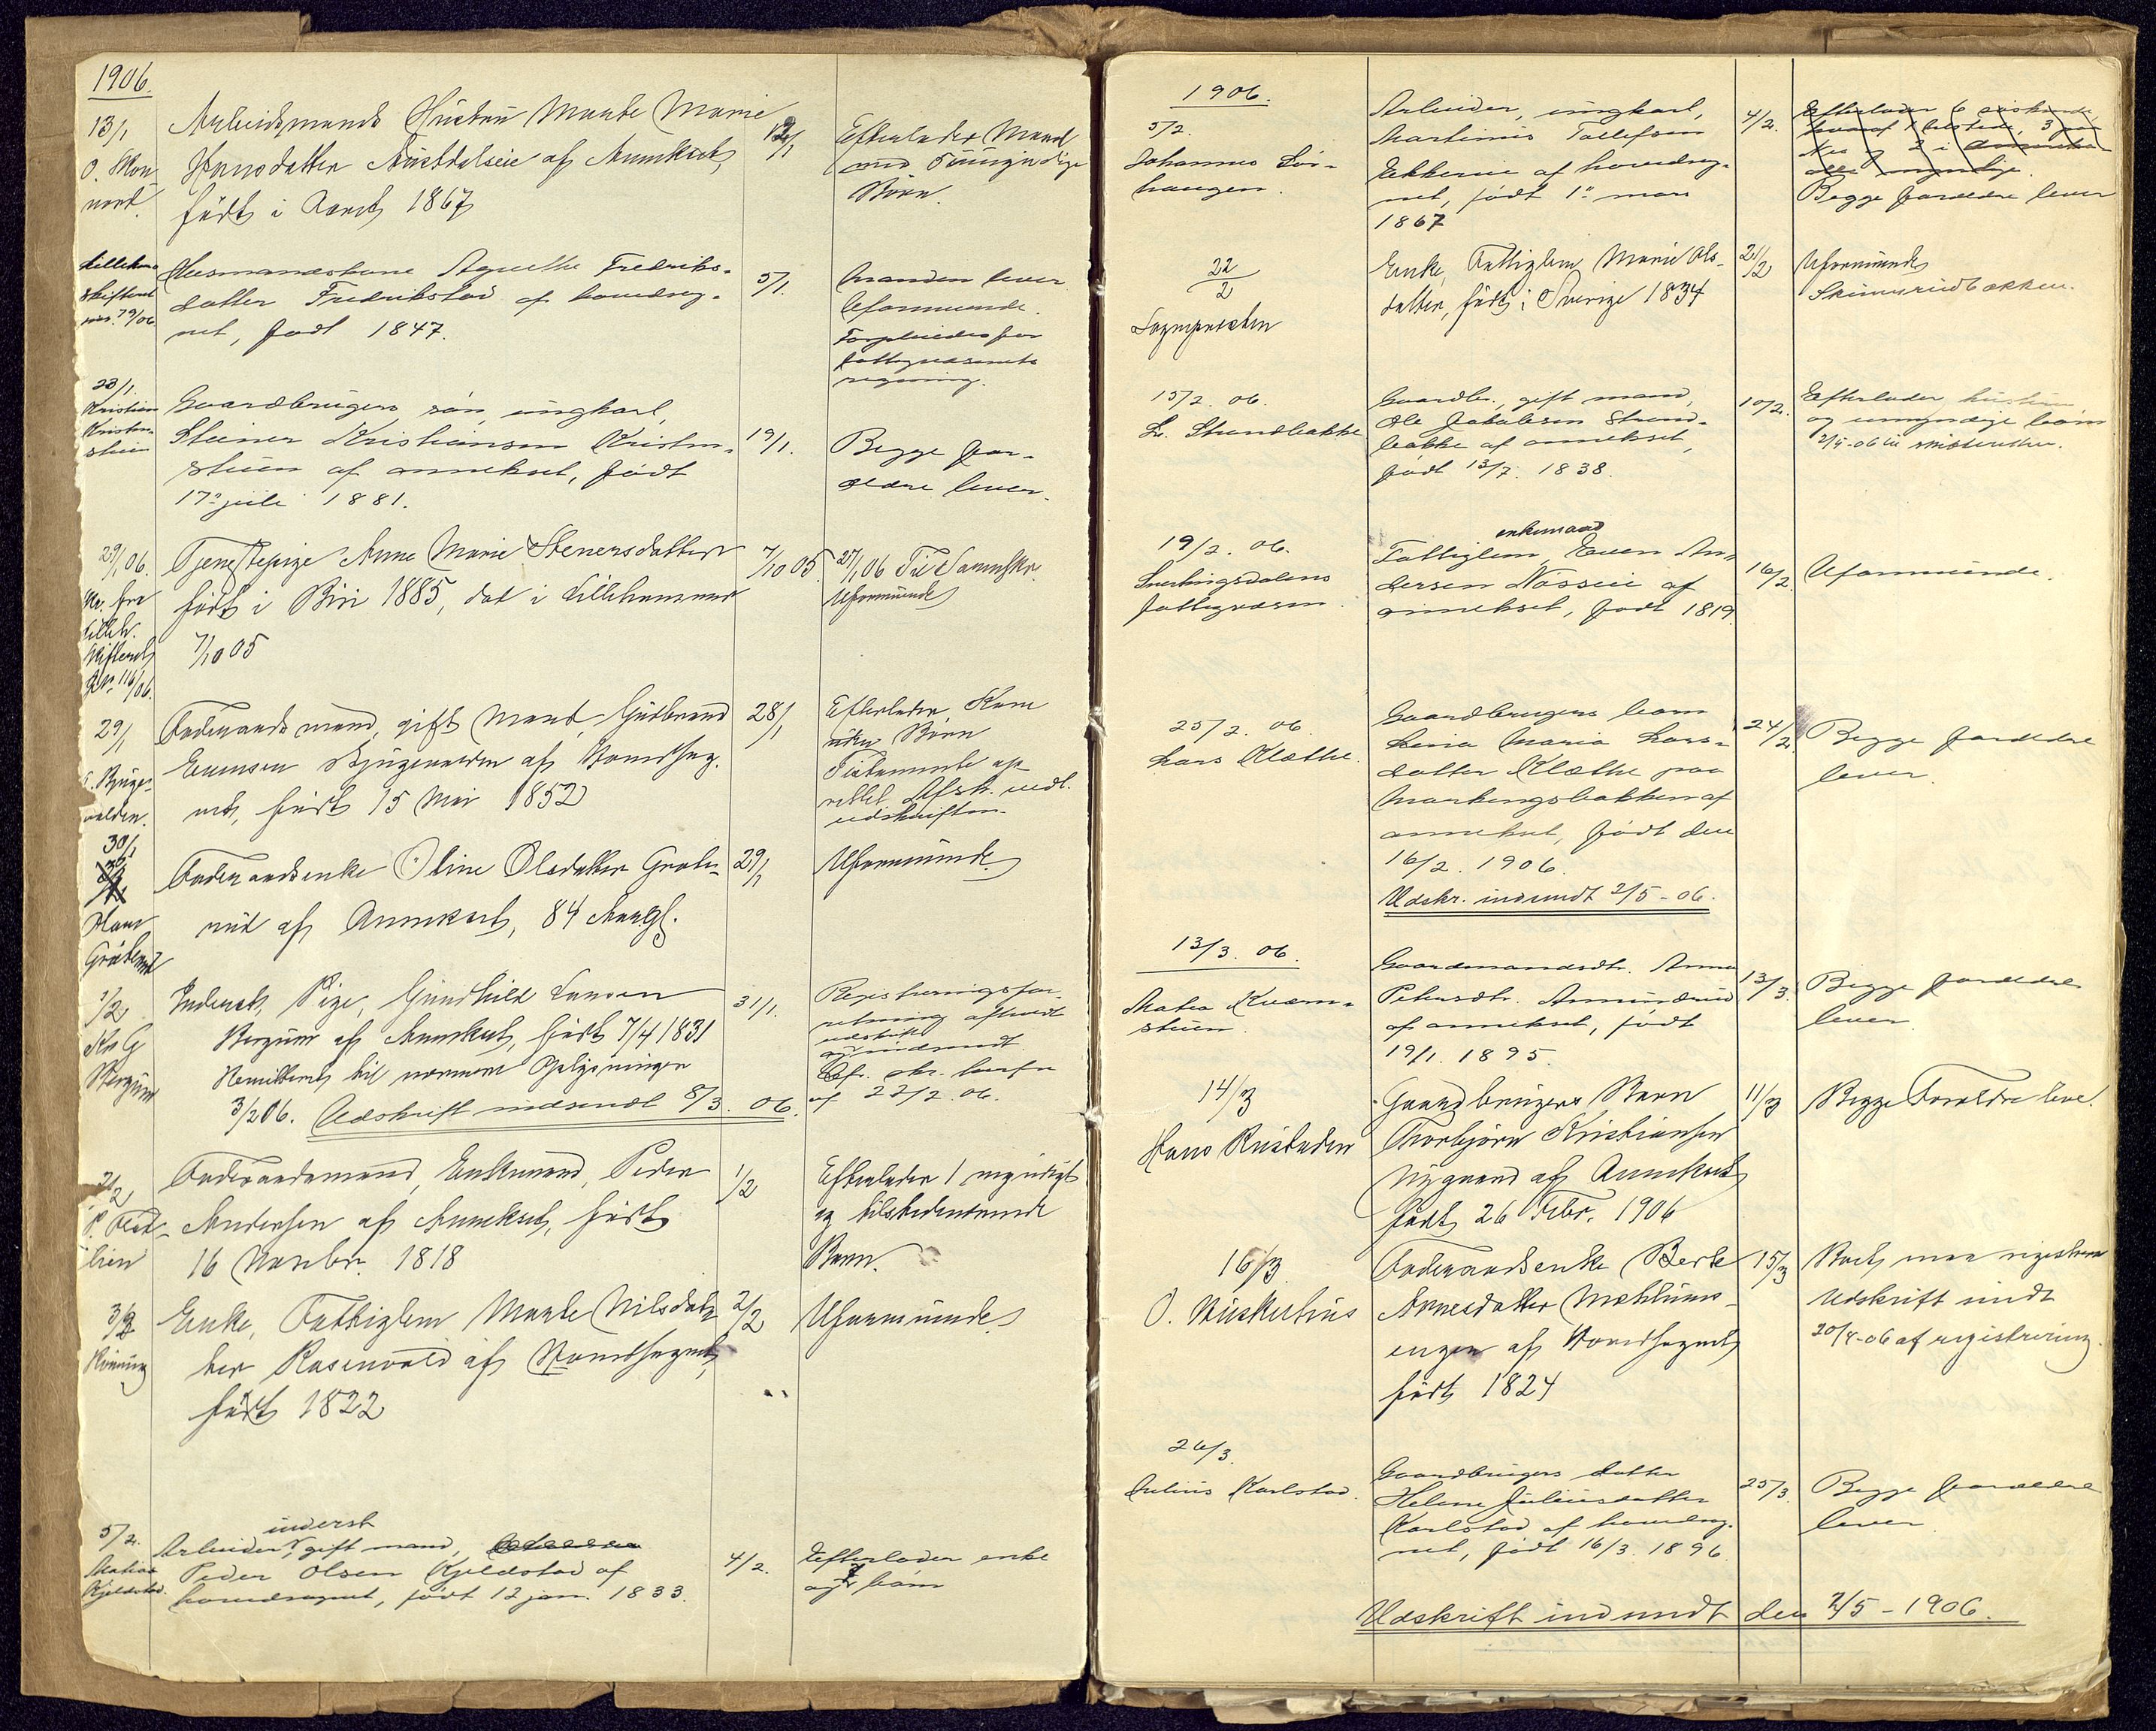 1906.
13/1
O. Mon
Arbeidsmands Hustru Marte Marie
Hansdatter af Annekset,
født i Annekset 1867
12/1
Efterlader Mand
med Umyndige
Børn.
Skifteret
79/06
Husmandskone Agnethe Fredriks-
datter Fredrikstad af hovedsog-
net, født 1847.
5/1.
Manden lever
Uformuende.
fattigvæsenets
regning.
23/1.
Kristian
Kristen-
stuen
Gaardbrugers søn, ungkarl,
Steiner Kristiansen Kristen-
stuen af annekset, født
17de juli 1881.
19/1.
Begge for-
ældre lever.
29/1 06.
fra
Lilleh.
Skifteret
116/06.
Tjenestepige Anne Marie Stenersdatter
født i Biri 1885, død i Lillehammer
7/10 05
7/10 05.
27/1 06 Til
Uformuende
29/1
Foderaadsmand, gift Mand, Gudbrand
Evensen af Hovedsog-
net, født 15 Mai 1852
28/1
Efterlader Kone
uden Børn
Testamente op-
rettet. Afskr. vedl.
udskriften.
30/1
Hans
Foderaadsenke Oline Olsdatter
rud af Annekset, 84 Aar gl.
29/1
Uformuende.
1/2
Bergum
Inderst, Pige, Gundhild Larsen
Bergum af Annekset, født 7/4 1831
til nærmere Oplysninger
3/2 06. Udskrift indsendt 8/3. 06.
31/1.
Registreringsfor-
retning afholdt
udskrift
indsendt.
af 22/2 06.
2/2
Foderaadsmand, Enkemand, Peder
Andersen af Annekset, født
16 Novbr. 1818
1/2
Efterlader 1 myndigt
og tilstedeværende
Barn.
3/2
Enke, Fattiglem Marte Nilsdat-
ter Rosenvold af Hovedsognet,
født 1822
2/2
Uformuende.
5/2.
Matias
Kjeldstad.
inderst
Arbeider, gift mand,
Peder Olsen Kjeldstad af
hovedsognet, født 12 jan. 1833.
4/2.
Efterlader enke
og børn
1906.
5/2.
Johannes Lør-
haugen.
Arbeider, ungkarl,
Martinus Tollefsen
Ekkernie af hovedsog-
net, født 1de mars
1867
4/2.
Efterlader 6 søskende,
hvoraf 1 tilstede, 3
og 2 i Amerika
alle myndige.
Begge forældre lever
22/2
Sognepresten
Enke, Fattiglem Marie Ols-
datter, født i Sverige 1834
21/2
Uformuende
Skinnerudbakken.
15/2. 06.
L. Strandbakke
Gaardbr., gift mand,
Ole Jakobsen Strand-
bakke af annekset,
født 13/7. 1838.
10/2.
Efterlader hustru
og umyndige børn
2/5-06 til skifteretten.
19/2. 06.
fattigvæsen
enkemand
Fattiglem, Even An-
dersen Nøsseie af
annekset, født 1819.
16/2.
Uformuende.
25/2. 06.
Lars Klæthe.
Gaardbrugers barn
Lina Maria Lars-
datter Klæthe paa
Markengsbakken af
annekset, født den
16/2. 1906.
Udskr. indsendt 2/5-06.
24/2.
Begge forældre
lever.
13/3. 06.
Matea Kværn-
stuen.
Gaardmandsdtr. Anna
Petersdtr. Amundrud
af annekset, født
19/1. 1895.
13/3.
Begge forældre
lever.
14/3
Hans Rustaden
Gaardbrugers Barn
Thorbjørn Kristiansen
Nygaard af Annekset
født 26 Febr. 1906
11/3
Begge Forældre leve.
16/3
Foderaadsenke Berte
Arnesdatter Mæhlums-
engen af Hovedsognet
født 1824
15/3
Boet maa registreres
Udskrift indt
20/4-06 af registrering.
26/3.
Julius Karlstad.
Gaardbrugers datter
Helene Juliusdatter
Karlstad af hovedsog-
net, født 16/3. 1896.
25/3.
Begge forældre
lever.
Udskrift indsendt den 2/5-1906.